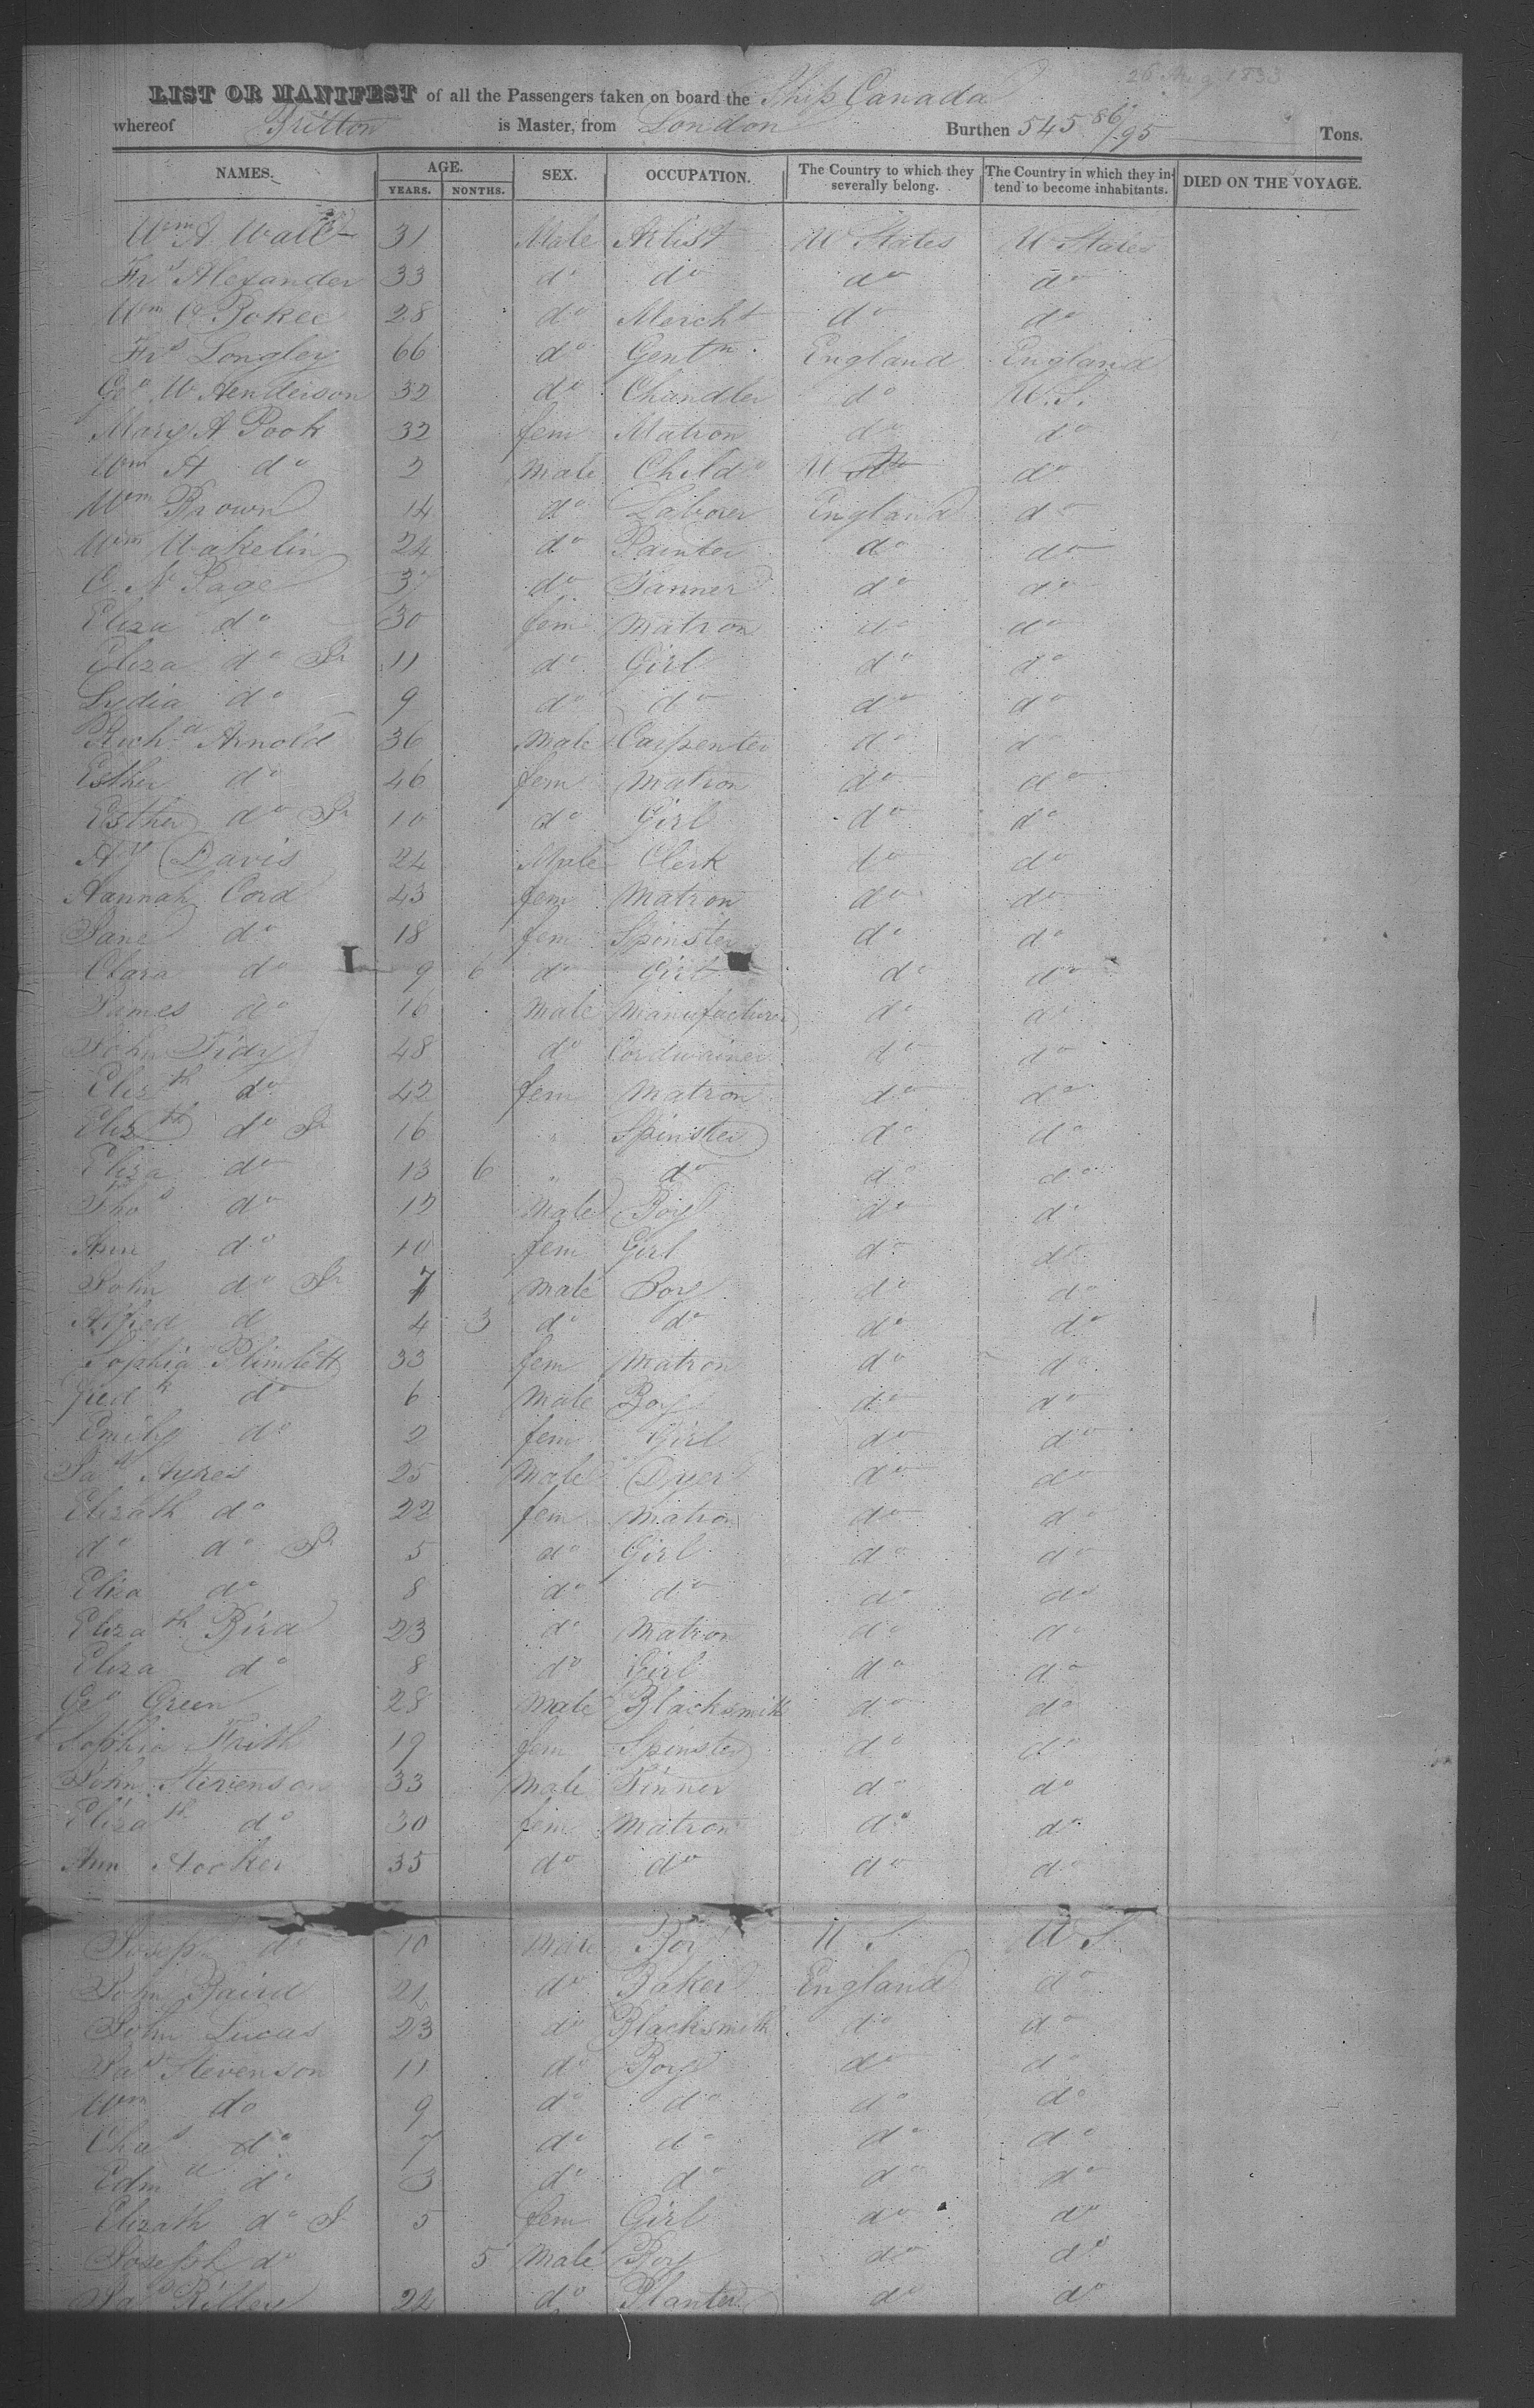 26 Aug 1833
LIST OR MANIFEST of all the Passengers taken on board the Ship Canada
whereof Britton is Master, from London Burthen 545 86/95 Tons.
NAMES. AGE. SEX. OCCUPATION. The Country to which they severally belong. The Country in which they intend to become inhabitants. DIED ON THE VOYAGE.
YEARS. MONTHS.
Wm A. Wall 31 Male Artist U States U States
Frs Alexander 33 do do do do
Wm Boker 28 do Mercht do do
Frs Longley 66 do Gentn England England
Geo W Henderson 32 do Chandler do U.S.
Mary A Pook 32 fem Matron do do
Wm A do 2 male Child U do
Wm Brown 14 do Laborer England do
Wm Wakelin 24 do Painter do do
C. N. Page 37 do Tanner do do
Eliza do 30 fem Matron do do
Eliza do Jr 11 do Girl do do
Lydia do 9 do do do do
Richd Arnold 36 male Carpenter do do
Esther do 46 fem matron do do
Esther do Jr 10 do Girl do do
Hy Davis 24 Male Clerk do do
Hannah Cord 43 fem Matron do do
Jane do 18 fem Spinster do do
Clara do 9 6 do Girl do do
James do 16 male Manufacturer do do
John Tidy 48 do Cordwainer do do
Elizth do 42 fem Matron do do
Elizth do Jr 16 " Spinster do do
Eliza do 13 6 " do do do
Thos do 12 Male Boy do do
Ann do 10 fem Girl do do
John do Jr 7 male Boy do do
Alfred d 4 3 do do do do
Sophia Plimlett 33 fem Matron do do
fredk do 6 male Boy do do
Emily do 2 fem Girl do do
Jas Ayres 25 Male Dyer do do
Elizath do 22 fem Matron do do
do do Jr 5 do Girl do do
Eliza do 8 do do do do
Elizath Bird 23 do Matron do do
Eliza do 8 do Girl do do
Geo Green 28 male Blacksmith do do
Sophia Frith 19 fem Spinster do do
John Stevenson 33 Male Tinner do do
Elizath do 30 fem Matron do do
Ann Hooker 35 do do do do
Joseph do 10 Male Boy U S U S
John Baird 21 do Baker England do
John Lucas 23 do Blacksmith do do
Jas Stevenson 11 do Boy do do
Wm do 9 do do do do
Chas do 7 do do do do
Edmd do 3 do do do do
Elizath do Jr 5 fem Girl do do
Joseph do 5 Male Boy do do
Jas Rilley 22 do Planter do do